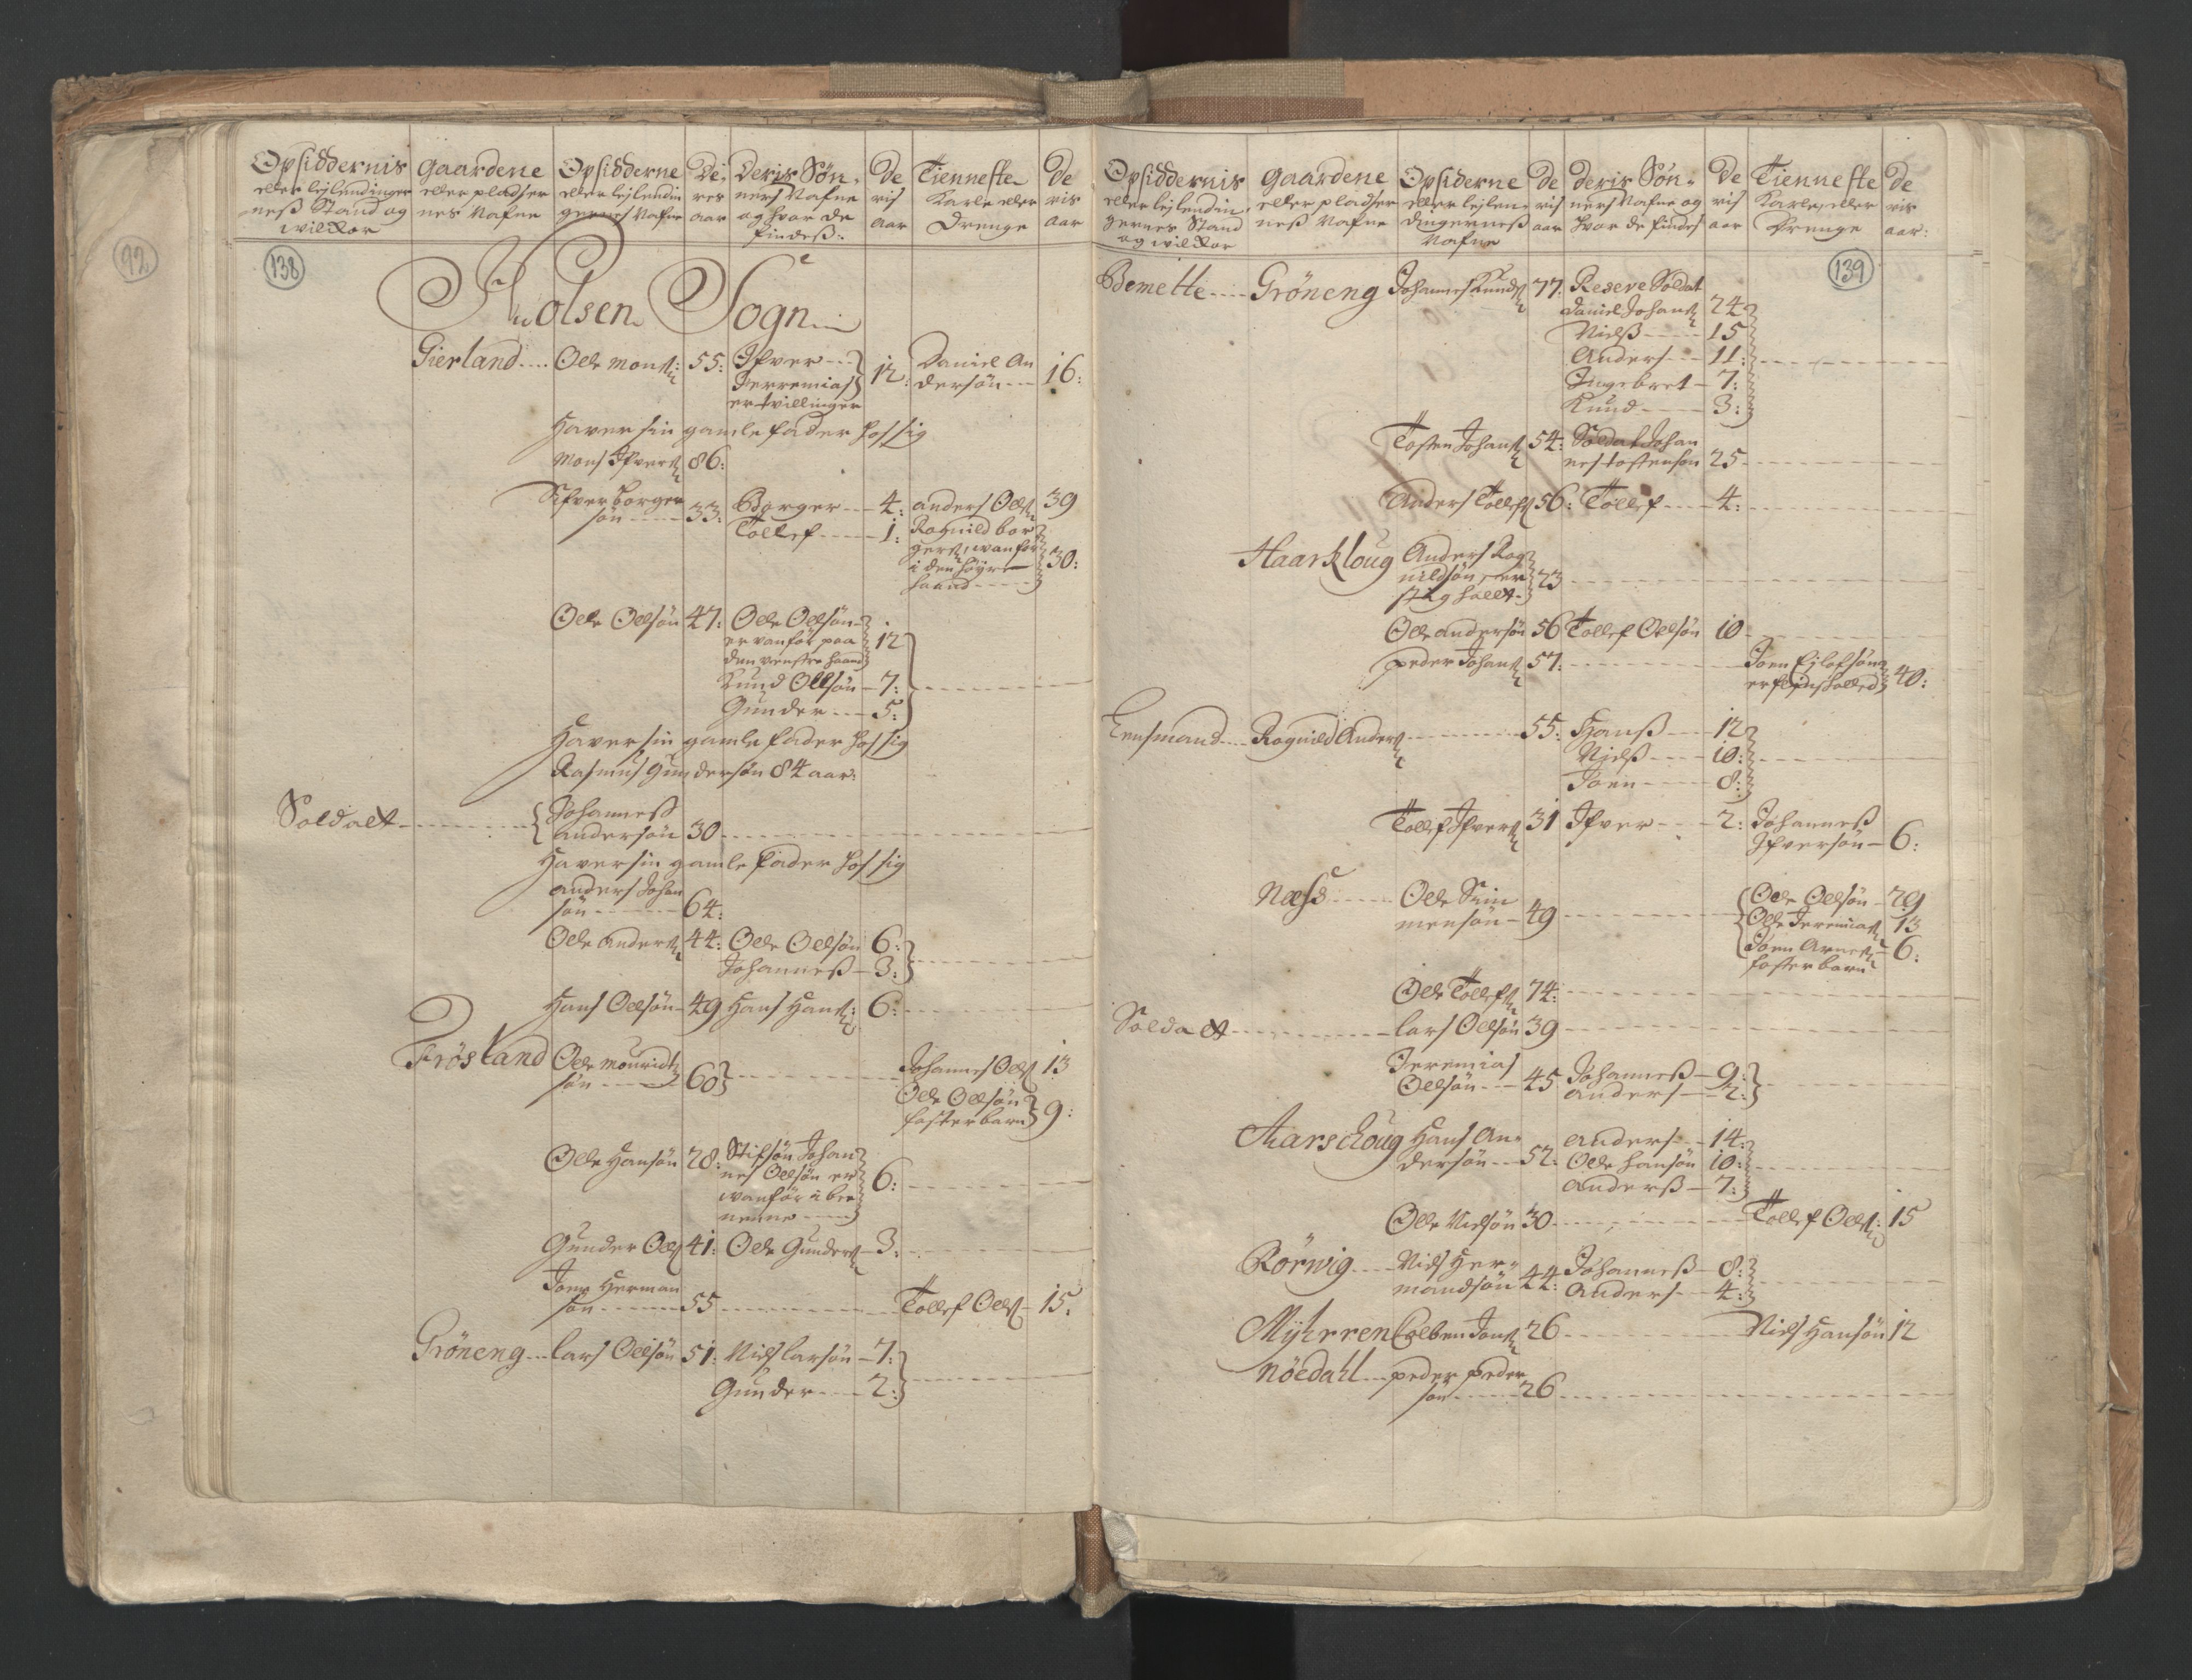 92
138
Opsiddernis eller lejlendinger neß Stand og wilkor
Gaardene eller pladser nes Nafne
Opsidderne eller lejlendin gernes Nafne
De res aar
Deris Søn ners Nafne og hvor de findeß
De ris aar
Tienneste Karle eller Drenge
De ris aar
Sogn
Gierland Ole Monß: 55: Ifver
Jerremias 12: Daniel An
dersøn 16:
er tvillinger
Haver sin gamle fader hos sig
Mons Ifverß 86:
Sifver borger
søn 33: Borger 4: anders Olß 39
Tollef 1: Rognild bor
gerß, wanfør
i den høyre 30:
haand
Ole Olsøn 47: Ole Olsøn
er vanfør paa 12
den venstre haand
Knud Olsøn 7:
Gunder 5:
Haver sin gamle fader hos sig
Rasmus Gundersøn 84 aar:
Soldat Johanneß
andersøn 30
Haver sin gamle fader hos sig
anders Johan
søn 64:
Ole anderß 44: Ole Olsøn 6:
Johanneß 3:
Hans Olsøn 49 Hans Hanß: 6:
Frøsland Ole Mouridt
søn 60 Johannes Olß 13
Ole Olsøn
fosterbarn 9:
Ole Hansøn 28: Stifsøn Johan
nes Olsøn er 6:
wanfør i bee
nenne
Gunder Olß 41: Ole Gunderß 3:
Joen Herman
søn 55 Tollef Olß 15:
Grøneng lars Olsøn 51: Niels larsøn 7:
Gunder 2:
139
Opsiddernis eller lejlendin gernes Stand og wilkor
Gaardene eller pladser neß Nafne
Opsiderne eller lejlen dingerneß Nafne
De ris aar
deris Søn ners Nafne og hvor de findes
De ris aar
Tienneste Karle, eller Drenge
De ris aar:
Bemelte Grøneng Johannes Knudß 77: Reserve Soldat
Daniel Johanß 24
Nielß 15
Anders 11:
Ingebret 7:
Knud 3:
Tosten Johanß 54: Soldat Johan
nes tostensøn 25
Anders Tollefß 56: Tollef 4:
Haarkloug Anders Rog
nildsøn, er 73
Ole andersøn 56 Tollef Olsøn 10
peder Johanß 57: Joen Ejlofsøn
40:
Lensmand Rognild Anderß 55: Hanß 12
Nielß 10:
Joen 8:
Tollef Ifverß 31 Ifver 2: Johanneß
Ifversøn 6:
Næss Ole Sim
mensøn 49 Ole Olsøn 29
Ole Jeremiaß 13
Joen Arneß 6:
fosterbarn
Ole Tollefß 74:
Soldat lars Olsøn 39
Jeremias
Olsøn 45 Johanneß 9:
anders 2:
Aarschoug Hans An
dersøn 52: anders 14:
Ole hansøn 10:
anderß 7:
Ole Nielsøn 30 Tollef Olß: 15
Rörwig Niels Her
mandsøn 44: Johanneß 8:
Anders 4:
Myhrren Colben Jonß 26 Niels Hansøn 12
Nöedahl peder peder
søn 26